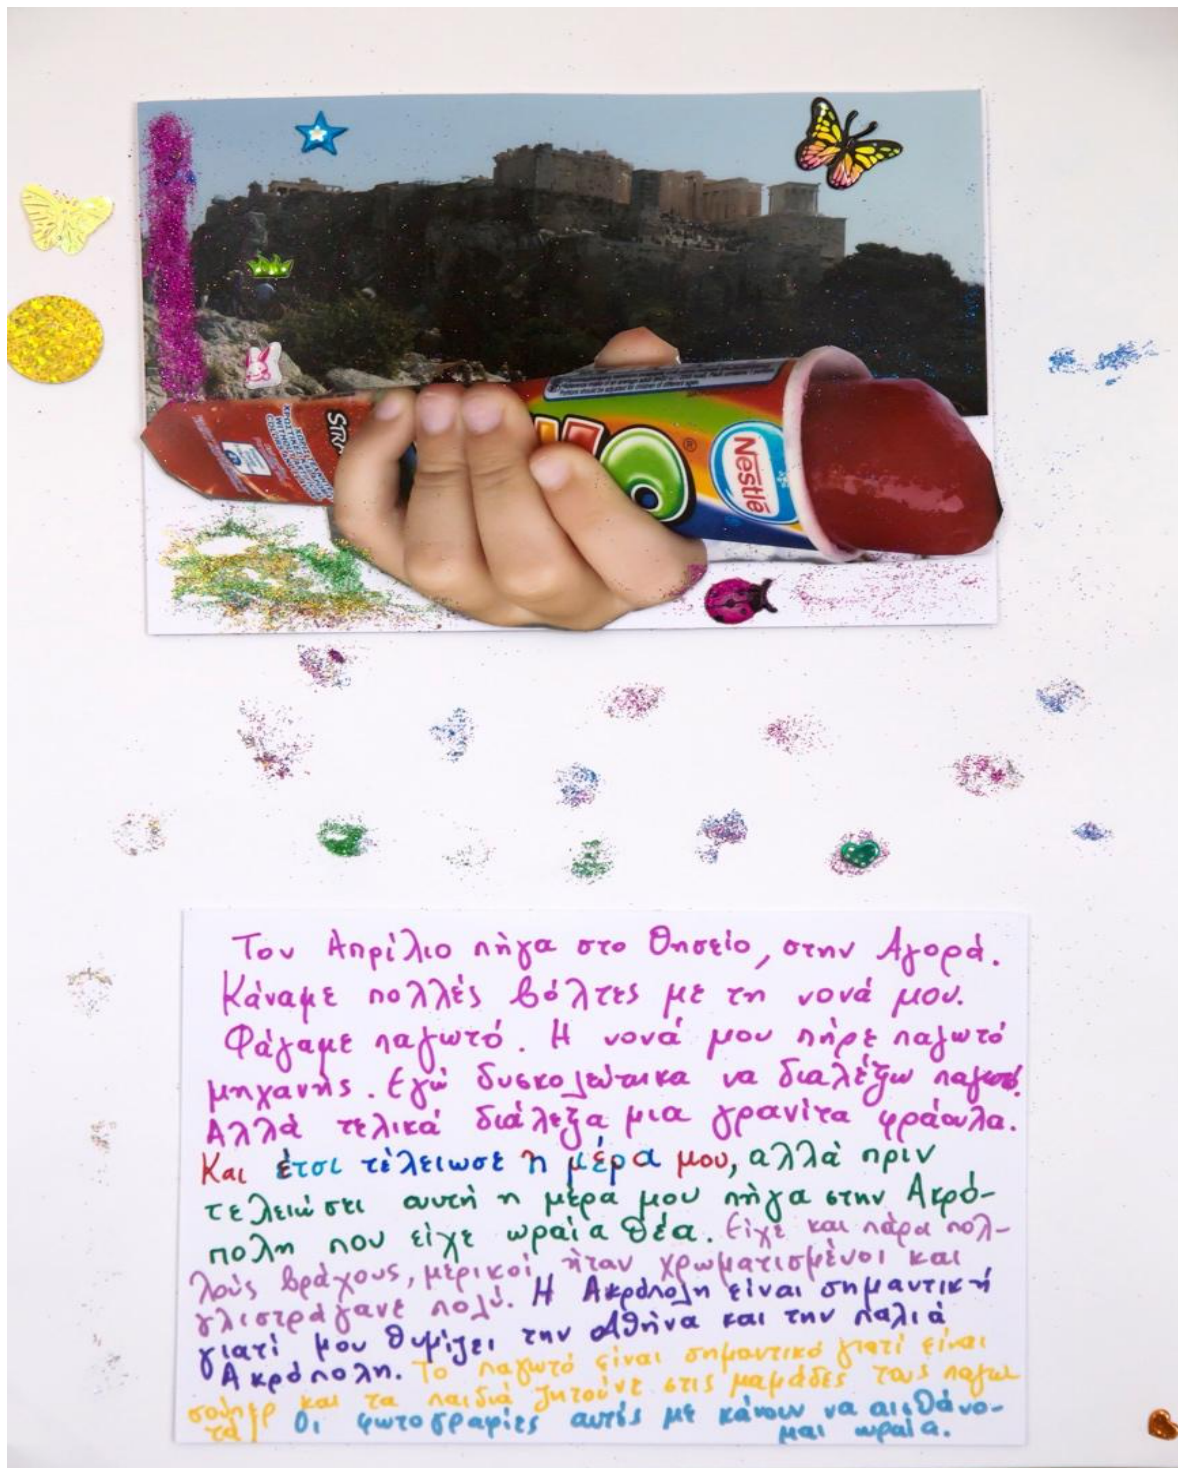 STR
ΧΩΡΙΣ
ΧΡΩΣΤΙΚΕΣ
WITHOUT
Nestlé
®
Τον Απρίλιο πήγα στο Θησείο, στην Αγορά.
Κάναμε πολλές βόλτες με τη νονά μου.
Φάγαμε παγωτό. Η νονά μου πήρε παγωτό
μηχανής. Εγώ δυσκολεύτικα να διαλέξω παγωτό.
Αλλά τελικά διάλεξα μια γρανίτα φράουλα.
Και έτσι τέλειωσε η μέρα μου, αλλά πριν
τελειώσει αυτή η μέρα μου πήγα στην Ακρό-
πολη που είχε ωραία θέα. Είχε και πάρα πολ-
λούς βράχους, μερικοί ήταν χρωματισμένοι και
γλιστράγανε πολύ. Η Ακρόπολη είναι σημαντική
γιατί μου θυμίζει την Αθήνα και την παλιά
Ακρόπολη. Το παγωτό είναι σημαντικό γιατί είναι
σούπερ και τα παιδιά ζητούνε στις μαμάδες τους παγω
τά Οι φωτογραφίες αυτές με κάνουν να αισθάνο-
μαι ωραία.